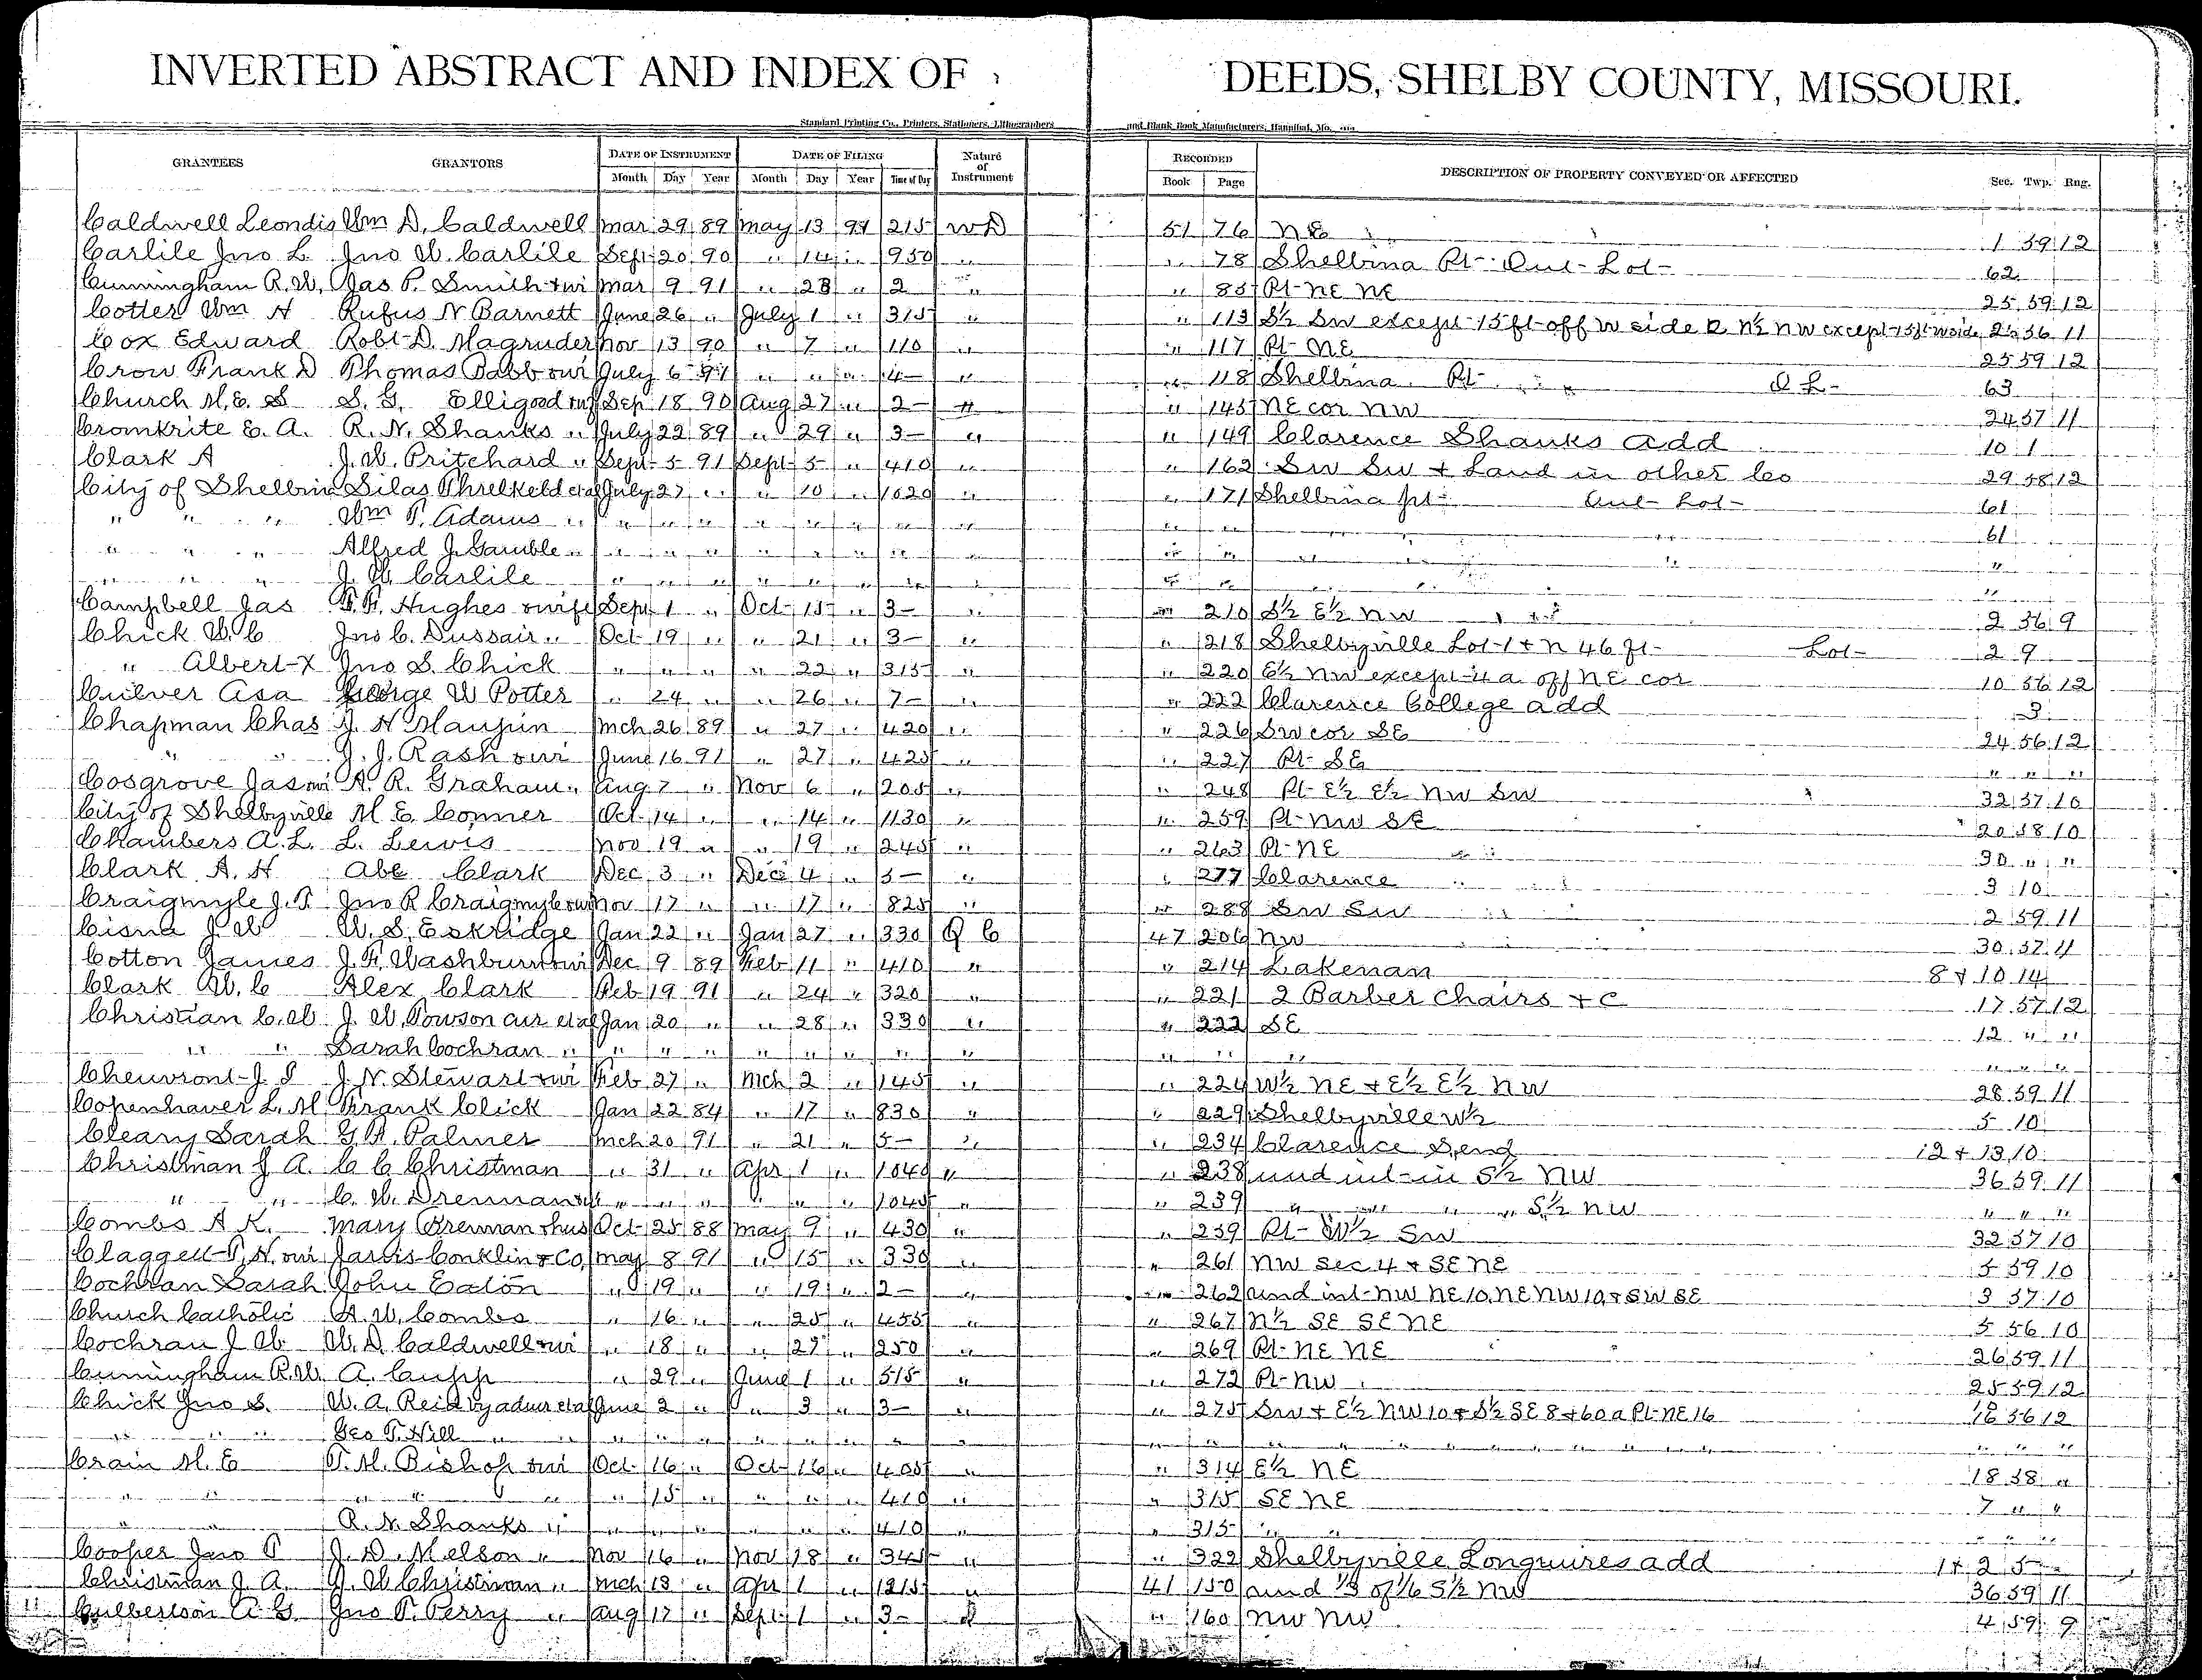 INVERTED ABSTRACT AND INDEX OF DEEDS, SHELBY COUNTY, MISSOURI.
Standard Printing Co., Printers, Stationers, Lithographers and Blank Book Manufacturers, Hannibal, Mo.
GRANTEES GRANTORS DATE OF INSTRUMENT DATE OF FILING Nature of Instrument RECORDED DESCRIPTION OF PROPERTY CONVEYED OR AFFECTED Sec. Twp. Rng.
Month Day Year Month Day Year Time of Day Book Page
Caldwell Leondis Wm D. Caldwell Mar 29 89 May 13 91 215 WD 51 76 NE 1 59 12
Carlile Jno L. Jno W. Carlile Sept 20 90 " 14 " 950 " " 78 Shelbina Pt Out Lot 62
Cunningham R.W. Jas P. Smith + wi Mar 9 91 " 28 " 2 " " 85 Pt NE NE 25 59 12
Cotter Wm H Rufus N Barnett June 26 " July 1 " 315 " " 113 S½ SW except 15 ft off W side & N½ NW except 15 ft W side 56 11
Cox Edward Robt D. Magruder Nov 13 90 " 7 " 110 " " 117 Pt NE 25 59 12
Crow Frank D Thomas Babb & wi July 6 91 " " " 4 " " 118 Shelbina Pt O L 63
Church M.E. S S. G. Elligood Sep 18 90 Aug 27 " 2 " " 145 NE cor NW 24 57 11
Cromkrite E. A. R. N. Shanks " July 22 89 " 29 " 3 " " 149 Clarence Shanks add 10 1
Clark A J. W. Pritchard " Sept 5 91 Sept 5 " 410 " " 162 SW SW + Land in other Co 29 58 12
City of Shelbina Silas Threlkeld et al July 27 " " 10 " 1020 " " 171 Shelbina pt Out Lot 61
" " " Wm T. Adams " " " " " " " " " " " " " 61
" " " Alfred J. Gamble " " " " " " " " " " " " " "
" " " J. W. Carlile " " " " " " " " " " " " "
Campbell Jas F. F. Hughes & wife Sept 1 " Oct 15 " 3 " " 210 S½ E½ NW 2 56 9
Chick W. C Jno C. Dussair " Oct 19 " " 21 " 3 " " 218 Shelbyville Lot 1 + N 46 ft Lot 2 9
" Albert X Jno S. Chick " " " " 22 " 315 " " 220 E½ NW except 4 a off NE cor 10 56 12
Culver Asa George W Potter " 24 " " 26 " 7 " " 222 Clarence College add 3
Chapman Chas J. H Maupin Mch 26 89 " 27 " 420 " " 226 SW cor SE 24 56 12
" " J. J. Rash & wi June 16 91 " 27 " 425 " " 227 Pt SE " " "
Cosgrove Jas & wi A. R. Graham " Aug 7 " Nov 6 " 205 " " 248 Pt E½ E½ NW SW 32 57 10
City of Shelbyville M E. Conner Oct 14 " " 14 " 1130 " " 259 Pt NW SE 20 58 10
Chambers A. L. L. Lewis Nov 19 " " 19 " 245 " " 263 Pt NE 30 " "
Clark A. H Abe Clark Dec 3 " Dec 4 " 5 " " 277 Clarence 3 10
Craigmyle J. T Jno R Craigmyle & wi Nov 17 " " 17 " 825 " " 288 SW SW 2 59 11
Cisna J W W. S. Eskridge Jan 22 " Jan 27 " 330 Q C 47 206 NW 30 57 11
Cotton James J. F. Washburn & wi Dec 9 89 Feb 11 " 410 " " 214 Lakenan 8 + 10 14
Clark W. C Alex Clark Feb 19 91 " 24 " 320 " " 221 2 Barber Chairs + C 17 57 12
Christian C. W. J. W. Towson cur et al Jan 20 " " 28 " 330 " " 222 SE 12 " "
" " Sarah Cochran " " " " " " " " " " " " " " "
Cheuvront J. S J. N. Stewart & wi Feb 27 " Mch 2 " 145 " " 224 W½ NE + E½ E½ NW 28 59 11
Copenhaver L. M. Frank Click Jan 22 84 " 17 " 830 " " 229 Shelbyville W½ 5 10
Cleary Sarah G. H. Palmer Mch 20 91 " 21 " 5 " " 234 Clarence S end 12 + 13 10
Christman J A. C C Christman " 31 " Apr 1 " 1040 " " 238 und int in S½ NW 36 59 11
" " C. W. Drennan " " " " " " 1045 " " 239 " " " " S½ NW " " "
Combs A K. Mary Brennan & hus Oct 25 88 May 9 " 430 " " 259 Pt W½ SW 32 57 10
Claggett T. H. & wi Jarvis Conklin & Co May 8 91 " 15 " 330 " 261 NW Sec 4 + SE NE 5 59 10
Cochran Sarah John Eaton " 19 " " 19 " 2 " " 262 und int NW NE 10, NE NW 10 & SW SE 3 57 10
Church Catholic A. W. Combs " 16 " " 25 " 455 " " 267 N½ SE SE NE 5 56 10
Cochran J W. W. D. Caldwell & wi " 18 " " 27 " 250 " " 269 Pt NE NE 26 59 11
Cunningham R. W. A. Cupp " 29 " June 1 " 515 " " 272 Pt NW 25 59 12
Chick Jno S. W. A. Reid by admr et al June 2 " " 3 " 3 " " 275 SW + E½ NW 10 + S½ SE 8 + 60 a Pt NE 16 56 12
" " " Geo T. Hill " " " " " " " " " " " " " " " "
Crain M. E T. M. Bishop & wi Oct 16 " Oct 16 " 405 " " 314 E½ NE 18 58 "
" " " " " " 15 " " " " 410 " " 315 SE NE 7 " "
" " R. N. Shanks " " " " " " " 410 " 315 " " " " "
Cooper Jno T J. D. Melson " Nov 16 " Nov 18 " 345 " " 322 Shelbyville Longmires add 1 + 2 5
Christman J. A. J. W Christman " Mch 13 " Apr 1 " 1215 " 41 150 und ⅓ of ⅙ S½ NW 36 59 11
Culbertson A. G. Jno T. Perry " Aug 17 " Sept 1 " 3 " 160 NW NW 4 59 9